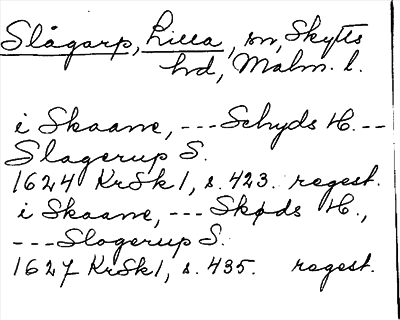 Slågarp, Lilla, sn, Skytts
hd, Malm. l.
i Skaane, --- Schyds H. --
Slagerup S.
1624 KrSk 1, s. 423. regest.
i Skaane, --- Skøds H.,
--- Slogerup S.
1627 KrSk 1, s. 435. regest.